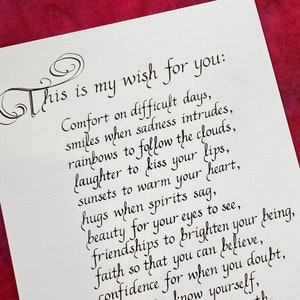 This is my wish for you:
Comfort on difficult days,
smiles when sadness intrudes,
rainbows to follow the clouds,
laughter to kiss your lips,
sunsets to warm your heart,
hugs when spirits sag,
beauty for your eyes to see,
friendships to brighten your being,
faith so that you can believe,
confidence for when you doubt,
know yourself,